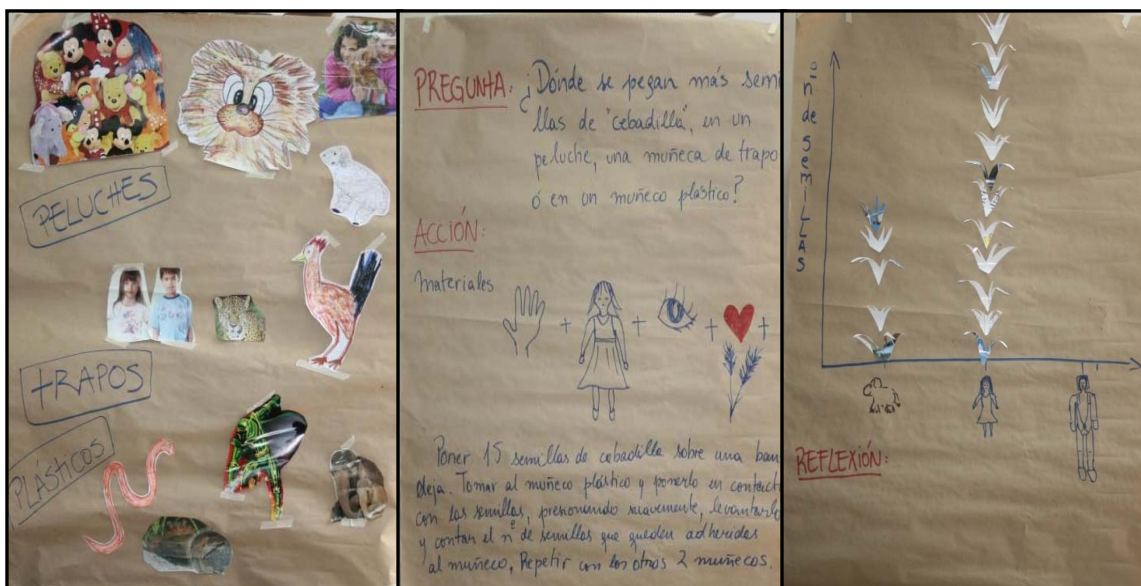 PELUCHES
TRAPOS
PLÁSTICOS
PREGUNTA: ¿Dónde se pegan más semi
llas de "cebadilla", en un
peluche, una muñeca de trapo
ó en un muñeco plástico?
ACCIÓN:
materiales
+ + + +
Poner 15 semillas de cebadilla sobre una ban
deja. Tomar al muñeco plástico y ponerlo en contacto
con las semillas, presionando suavemente, levantarlo
y contar el nº de semillas que queden adheridas
al muñeco, Repetir con los otros 2 muñecos.
nº de SEMILLAS
REFLEXIÓN: